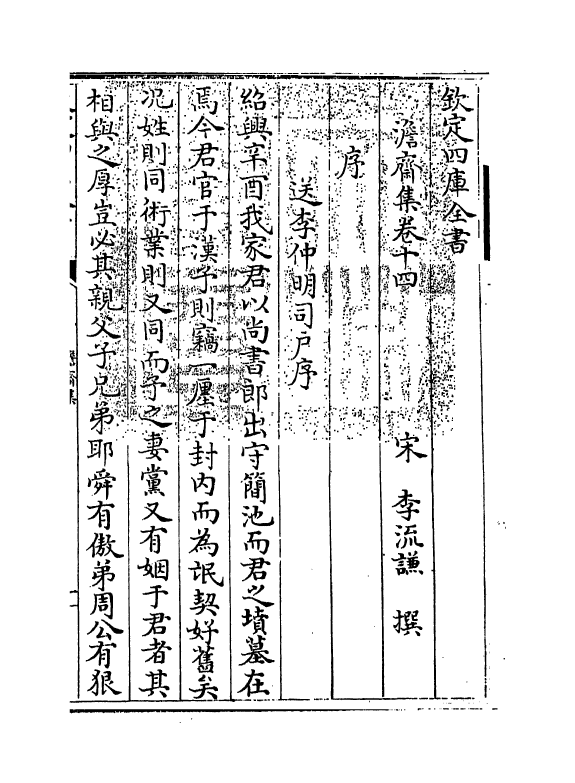 欽定四庫全書
澹齋集卷十四
宋　李流謙　撰
序
送李仲明司戶序
紹興辛酉我家君以尚書郎出守簡池而君之墳墓在
焉今君官于漢予則竊一廛于封内而為氓契好舊矣
况姓則同術業則又同而子之妻黨又有姻于君者其
相與之厚豈必其親父子兄弟耶舜有傲弟周公有狠